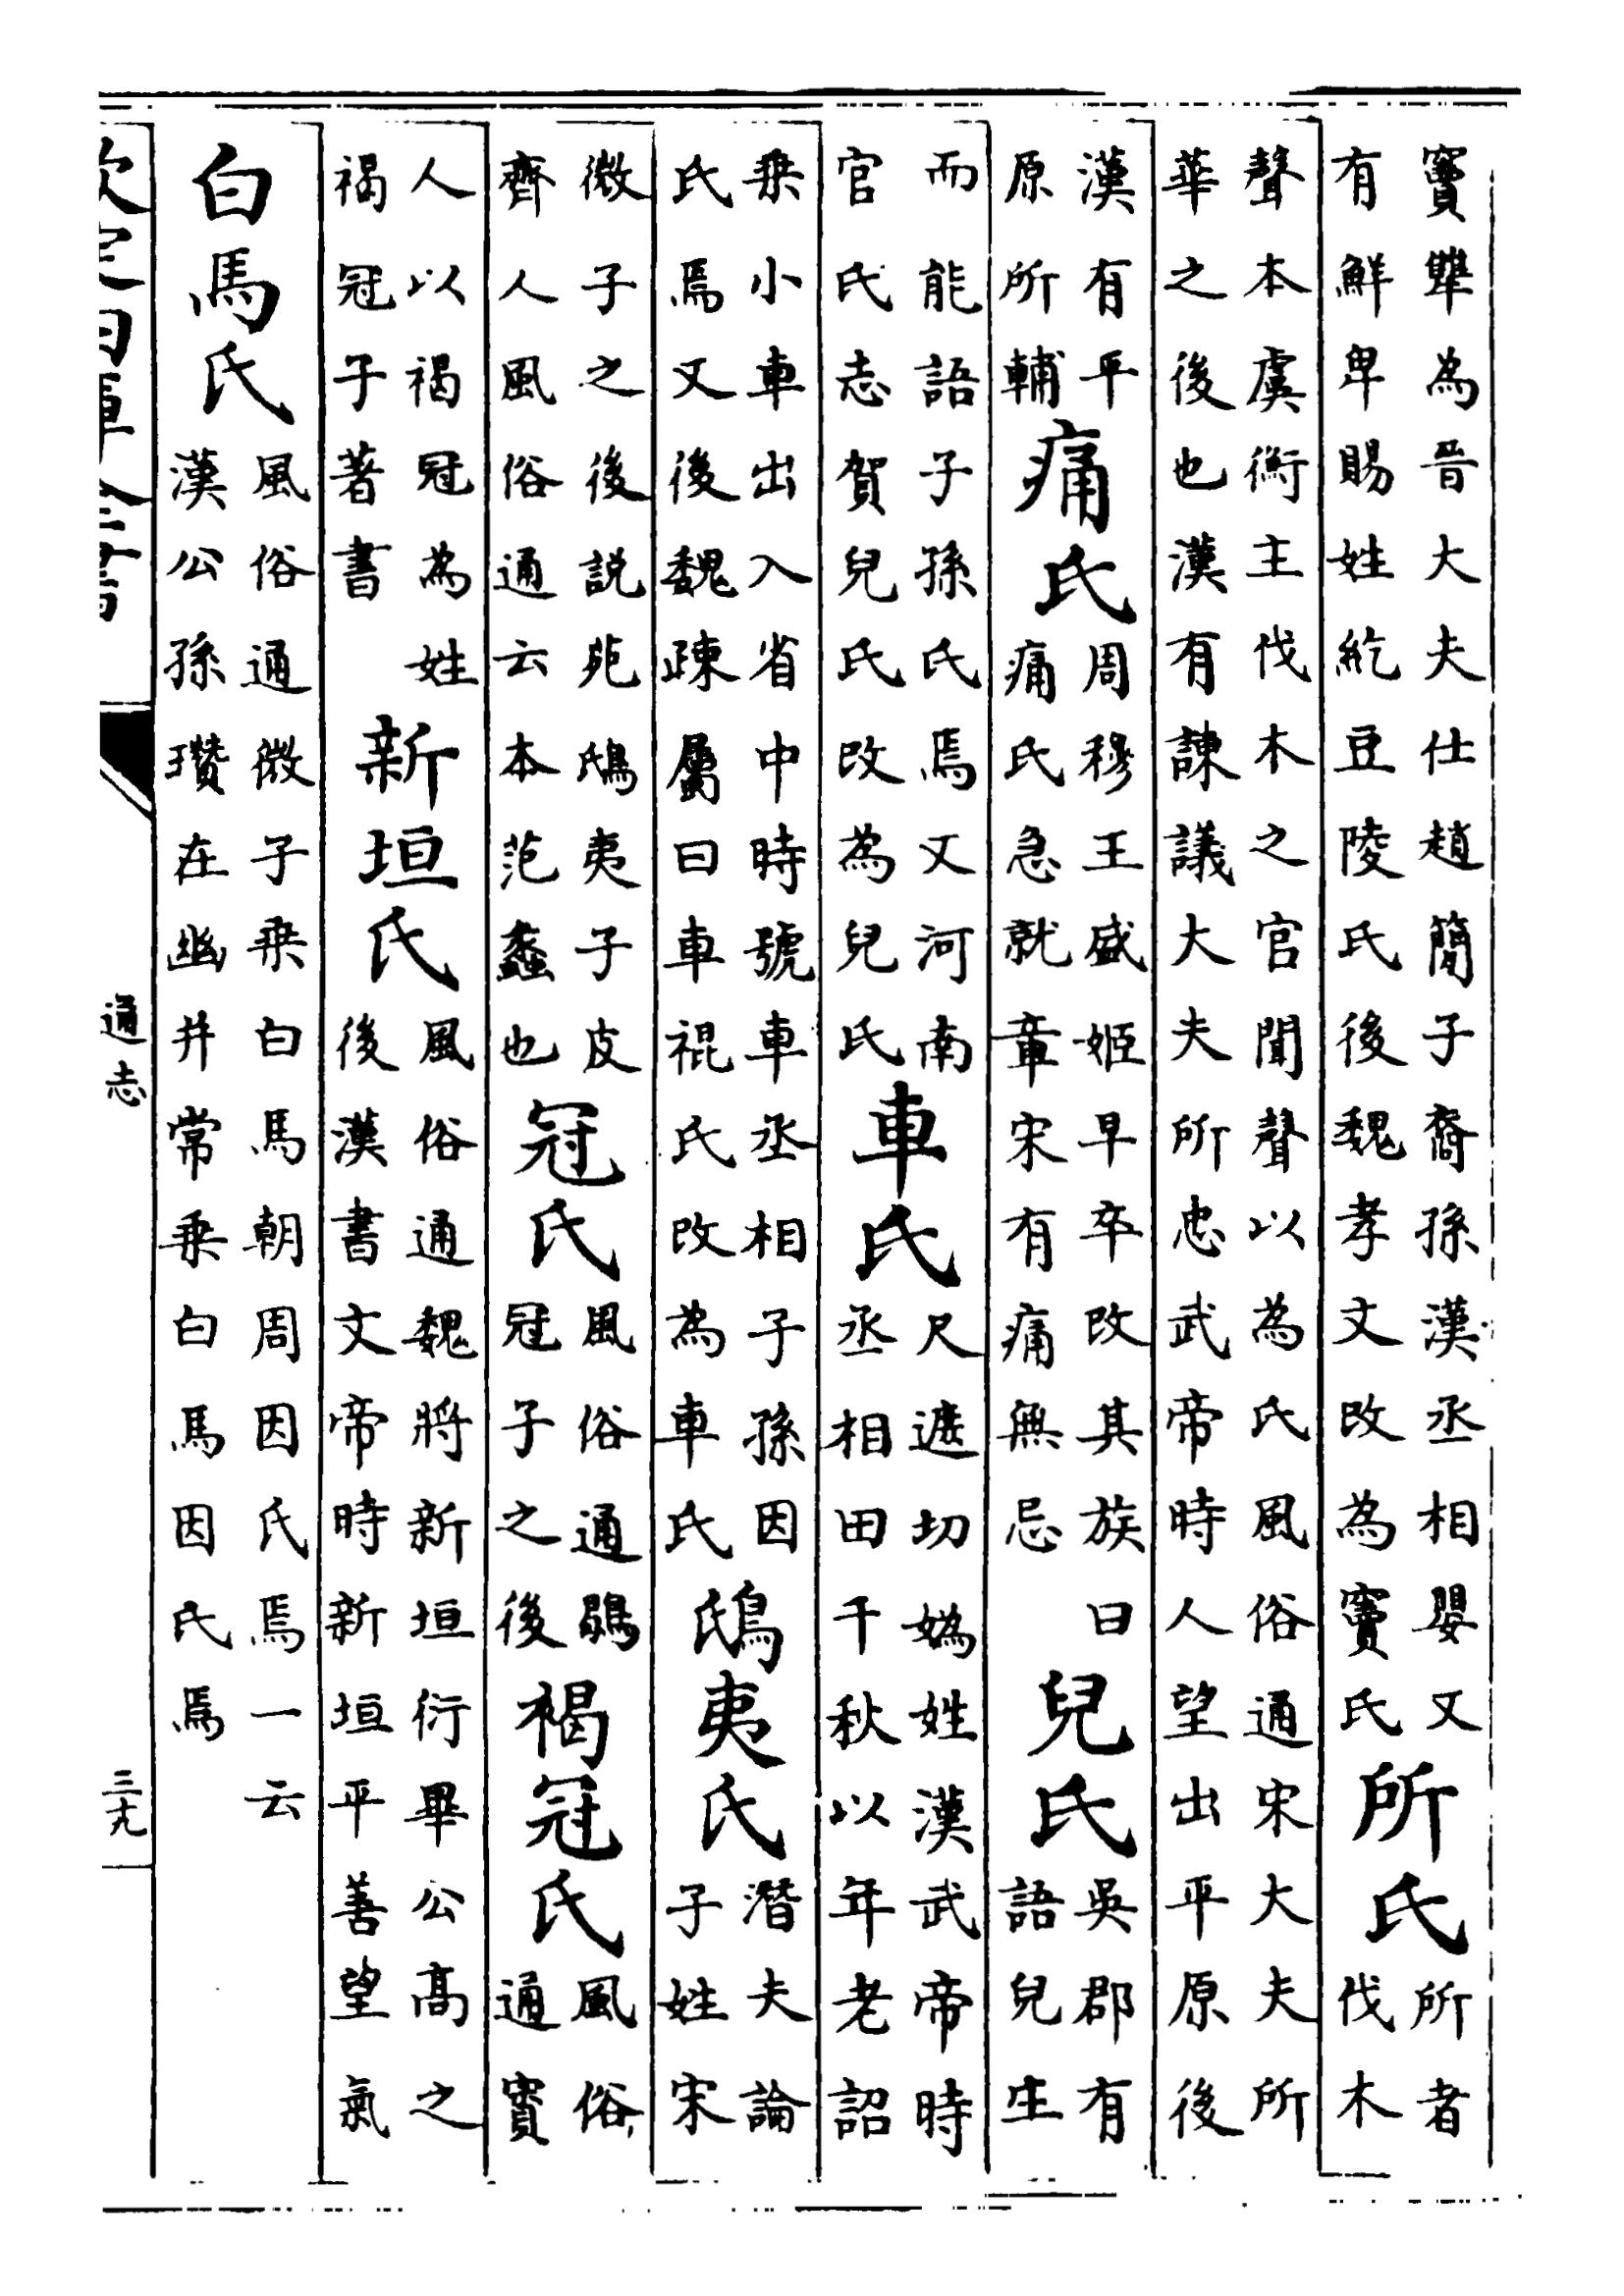 竇犨為晉大夫仕趙簡子裔孫漢丞相嬰又
有鮮卑賜姓紇豆陵氏後魏孝文改為竇氏
所氏
所者
伐木
聲本虞衡主伐木之官聞聲以為氏風俗通宋大夫所
華之後也漢有諫議大夫所忠武帝時人望出平原後
漢有平
原所輔
痛氏
周穆王盛姬早卒改其族曰
痛氏急就章宋有痛無忌
兒氏
吳郡有
語兒生
而能語子孫氏焉又河南
官氏志賀兒氏改為兒氏
車氏
尺遮切媯姓漢武帝時
丞相田千秋以年老詔
乗小車出入省中時號車丞相子孫因
氏焉又後魏疎屬曰車祝氏改為車氏
鴟夷氏
潛夫論
子姓宋
微子之後說苑鴟夷子皮
齊人風俗通云本范蠡也
冠氏
風俗通鶡
冠子之後
褐冠氏
風俗
通賨
人以褐冠為姓
褐冠子著書
新垣氏
風俗通魏將新垣衍畢公髙之
後漢書文帝時新垣平善望氣
白馬氏
風俗通微子乗白馬朝周因氏焉一云
漢公孫瓚在幽并常乗白馬因氏焉
欽定四庫全書
通志
三十九